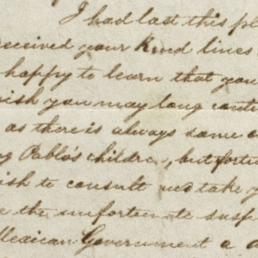 I had last this pl
received your kind lines
happy to learn that you
wish you may long conti
as there is always some
Pablo's childre, but fortu
ish to consult
the unfortunate susp
Mexican Government a